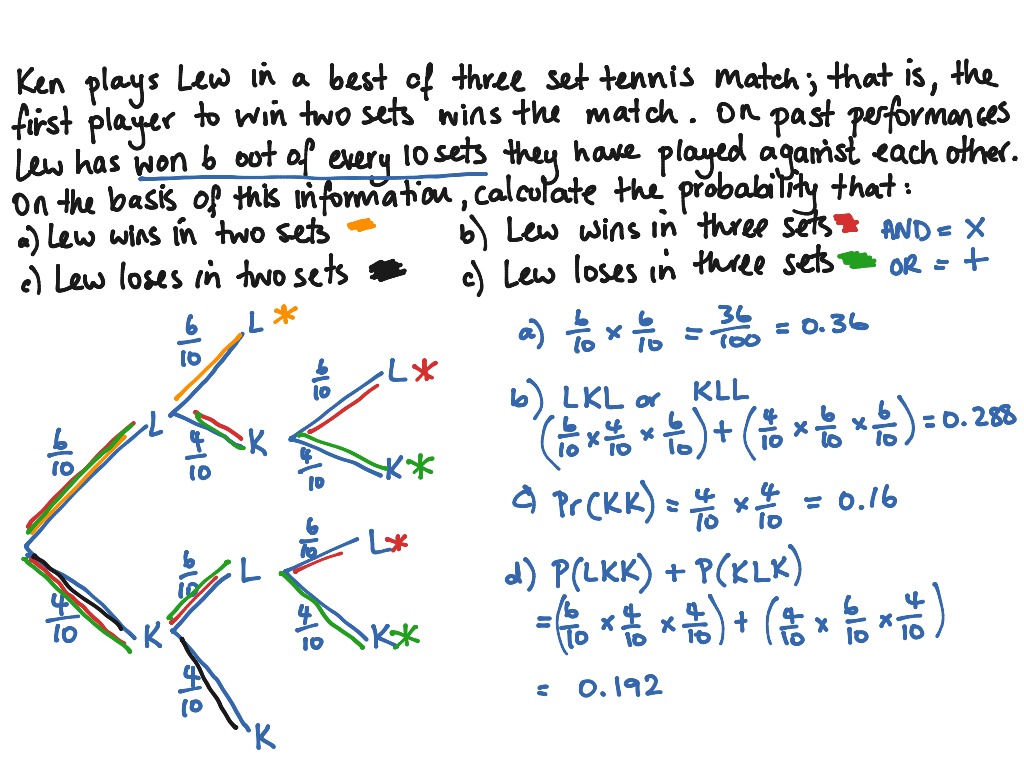 Ken plays Lew in a best of three set tennis match; that is, the
first player to win two sets wins the match. On past performances
Lew has won 6 out of every 10 sets they have played against each other.
On the basis of this information, calculate the probability that:
a) Lew wins in two sets b) Lew wins in three sets AND = ×
c) Lew loses in two sets c) Lew loses in three sets OR = +
6/10 L *
6/10 L *
6/10 L
4/10 K
4/10 K *
6/10 L *
6/10 L
4/10 K
4/10 K *
4/10 K
a) 6/10 × 6/10 = 36/100 = 0.36
b) LKL or KLL
(6/10 × 4/10 × 6/10) + (4/10 × 6/10 × 6/10) = 0.288
c) Pr(KK) = 4/10 × 4/10 = 0.16
d) P(LKK) + P(KLK)
= (6/10 × 4/10 × 4/10) + (4/10 × 6/10 × 4/10)
= 0.192